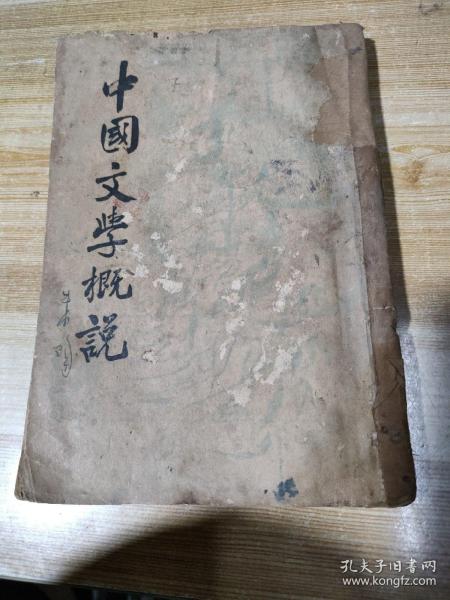 中國文學概說
孔夫子旧书网
www.kongfz.com